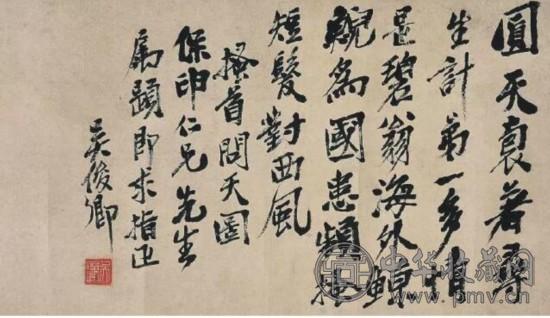 圓天裹著尋
生計第一多情
是碧翁海外
為國患頻搔
短髮對西風
搔首問天圖
保申仁兄先生
屬題即求指正
吳俊卿
中华收藏网
www.pmv.cn